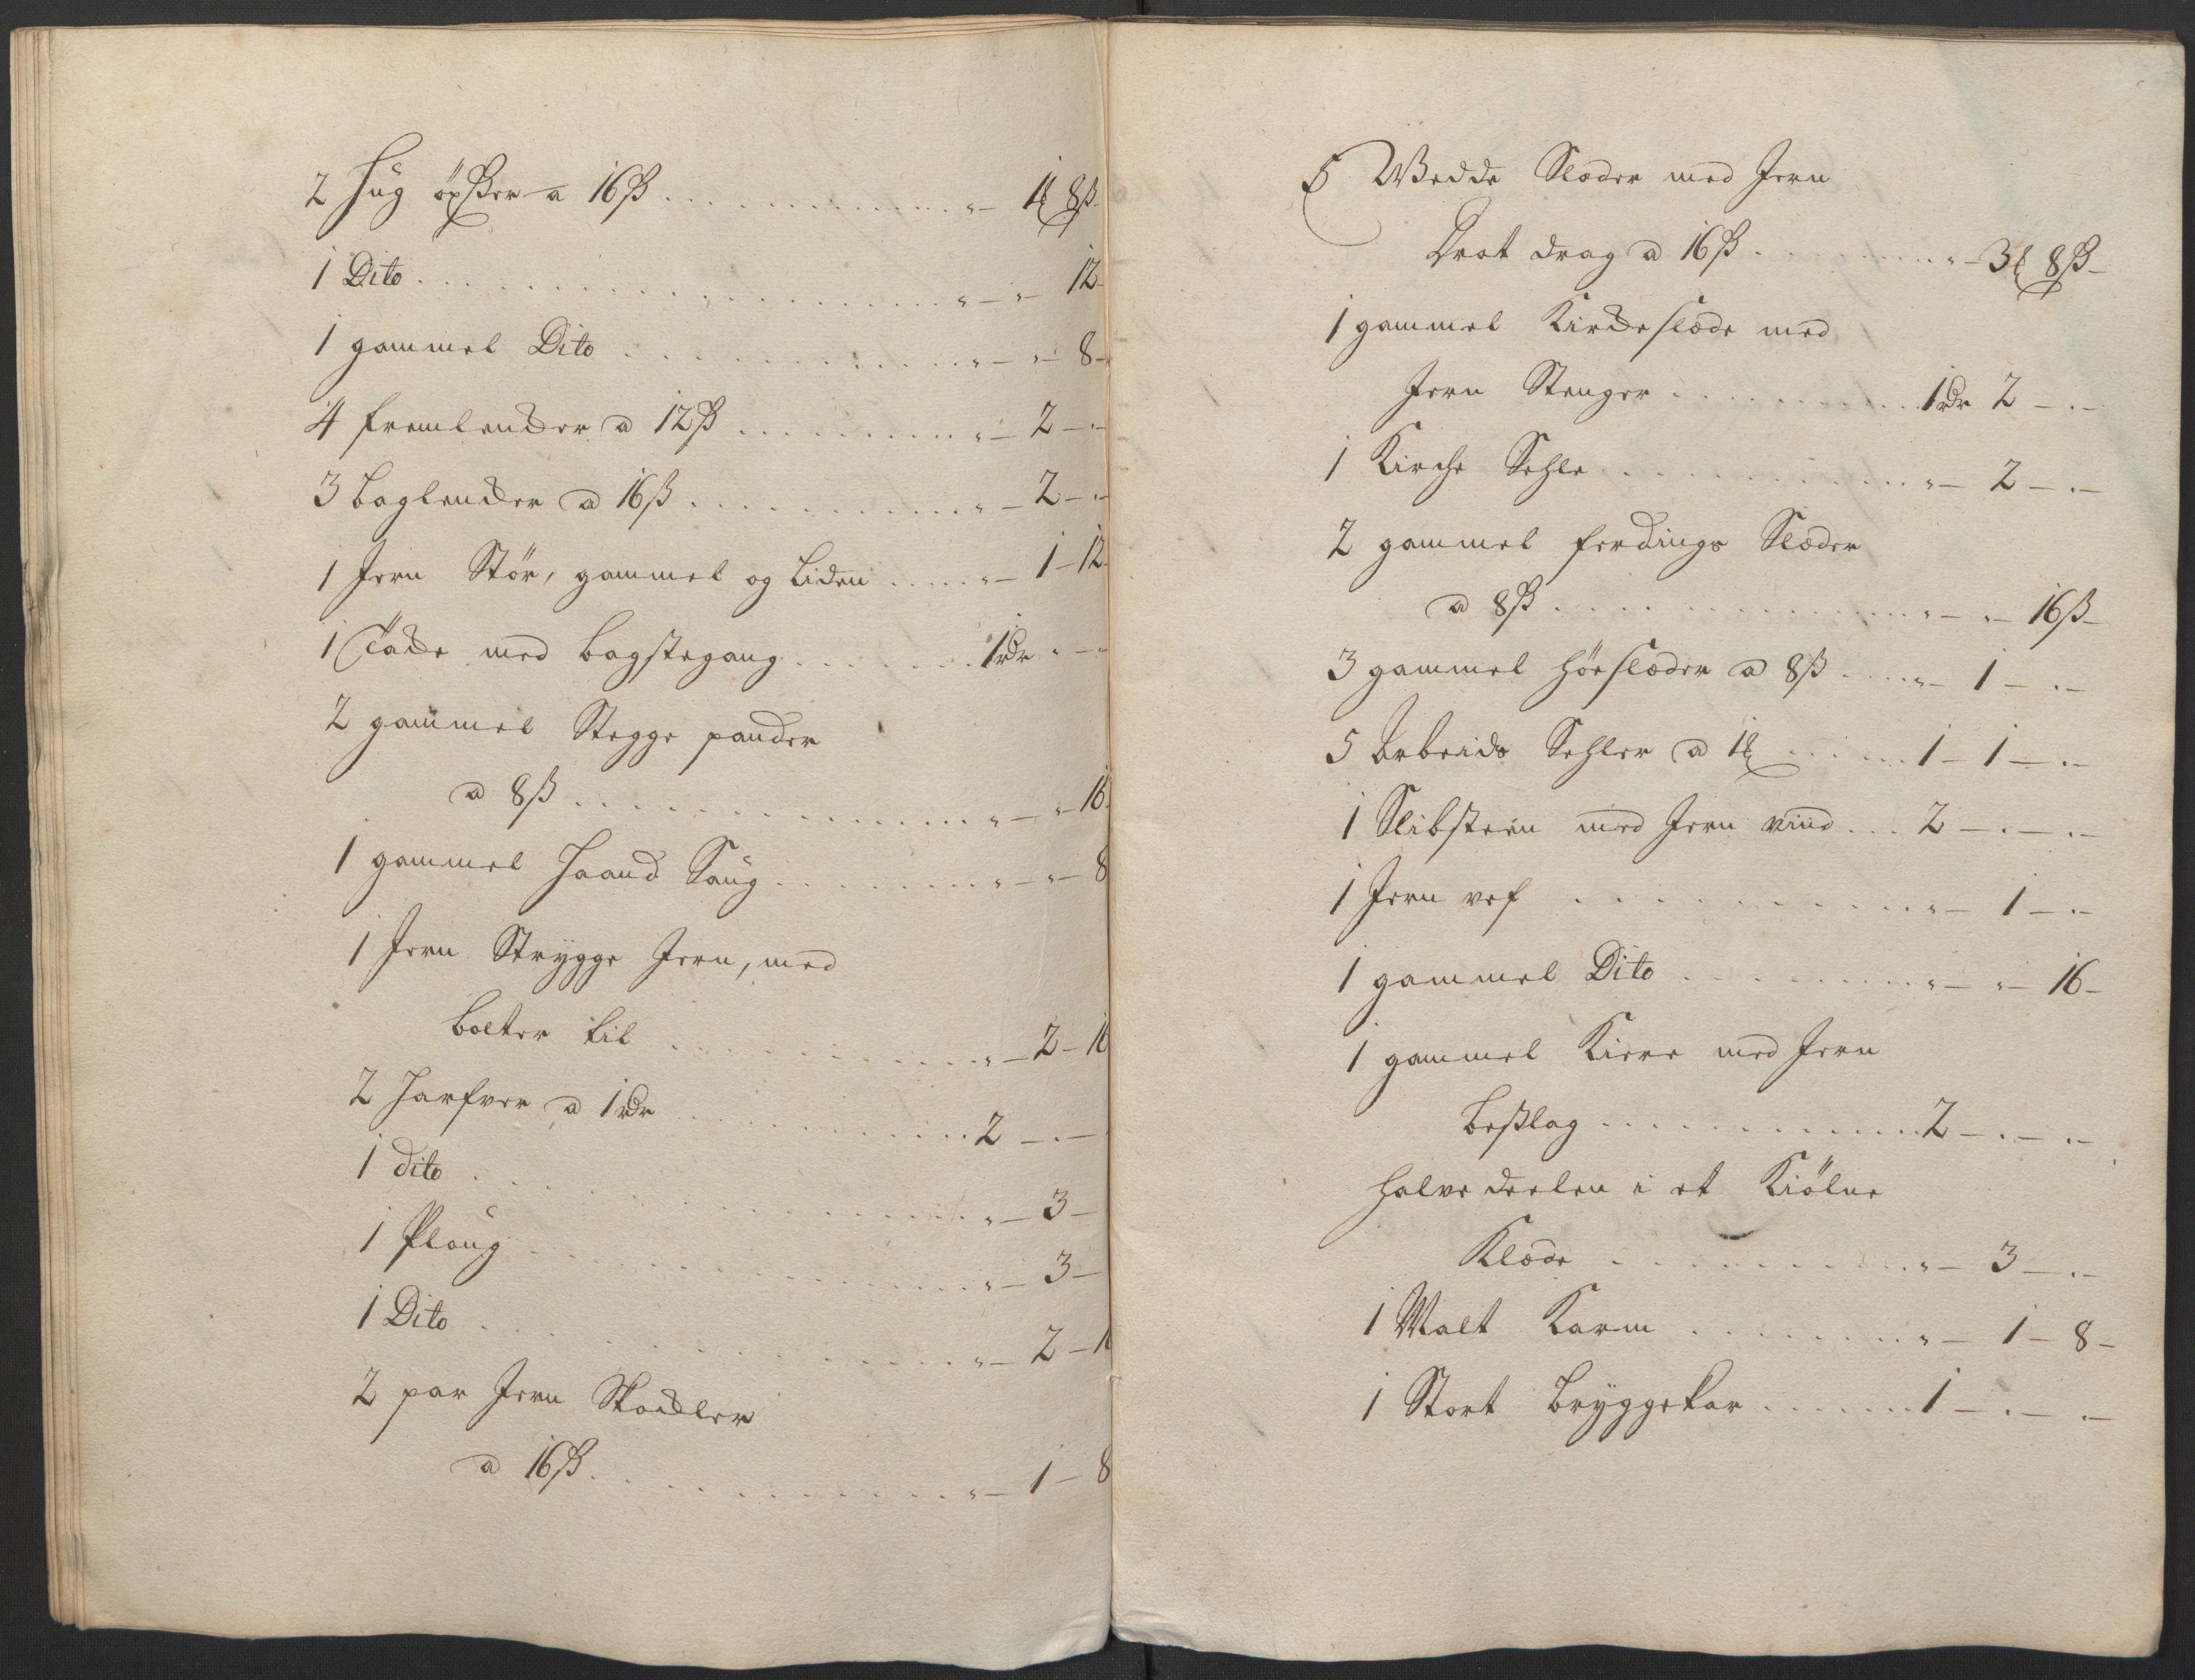 2 Hug öxßer a 16ß . . . . . . . . . . " – 1 8ß
1 Dito . . . . . . . . . . " – " – 12
1 gammel Dito . . . . . . . . . . " – " – 8 –
4 fremlender a 12ß . . . . . . . . . . " – 2 – " –
3 baglender a 16ß . . . . . . . . . . " – 2 – " –
1 Jern Stör, gammel og liden . . . . . " – 1 – 12
1 med bagstegang . . . . . . . 1 rdr " –
2 gammel Stegge pander
a 8ß . . . . . . . . . . " – " – 16
1 gammel Haand Saug . . . . . . . . . . " – " – 8
1 Jern Strygge Jern, med
bolter til . . . . . . . . . . " – 2 – 16
2 Harfver a 1 rdr . . . . . . . . . . 2 – " –
1 dito . . . . . . . . . . " – 3 –
1 Ploug . . . . . . . . . . " – 3 –
1 Dito . . . . . . . . . . " – 2 – 1
2 par Jern
a 16ß . . . . . . . . . . " – 1 – 8
5 Wedde Slæder med Jern
drag a 16ß . . . . . . . . . . " – 3 8ß –
1 gammel Kircheslæde med
Jern Stenger . . . . . . . . . . 1 rdr 2 – " –
1 Kirche Sehle . . . . . . . . . . " – 2 – " –
2 gammel ferdings Slæder
a 8ß . . . . . . . . . . " – " – 16ß –
3 gammel höeslæder a 8ß . . . . . " – 1 – " –
5 Arbeids Sehler a 1 . . . . . 1 – 1 – " –
1 Slibsteen med Jern vind . . . 2 – " – " –
1 Jern ref . . . . . . . . . . " – 1 – " –
1 gammel Dito . . . . . . . . . . " – " – 16 –
1 gammel Kiere med Jern
beßlag . . . . . . . . . . 2 – " – " –
halve deelen i et Kiölne
Klæde . . . . . . . . . . " – 3 – " –
1 Malt Karm . . . . . . . . . . " – 1 – 8 –
1 Stort bryggekar . . . . . . 1 – " – " –